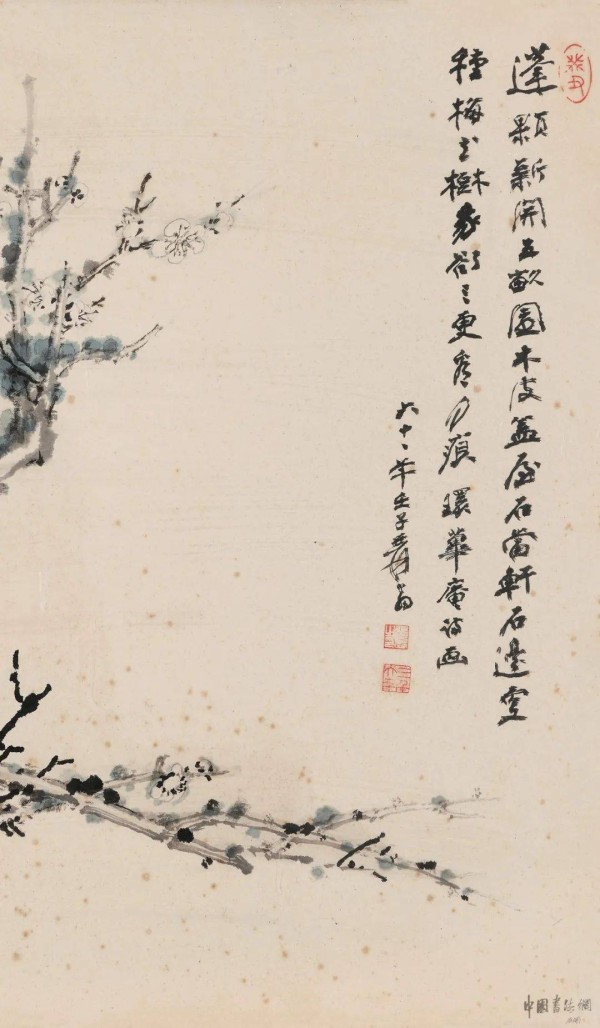 癸丑
蓬顆新開五畝園木皮蓋屋石當軒石邊
種梅樹更看痕環蓽庵詩畫
六十一年壬子爰翁
中國書法網